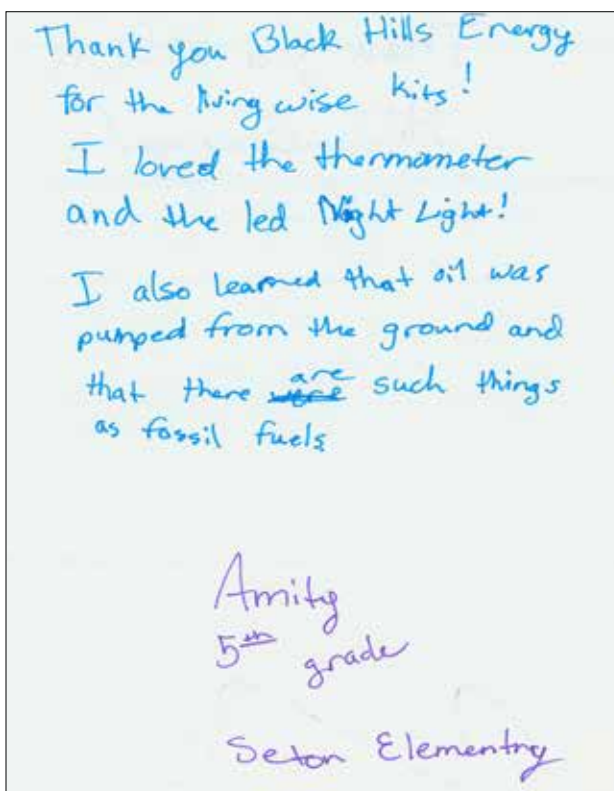 Thank you Black Hills Energy
for the living wise kits!
I loved the thermometer
and the led Night Light!
I also learned that oil was
pumped from the ground and
that there are such things
as fossil fuels
Amity
5th grade
Seton Elementry